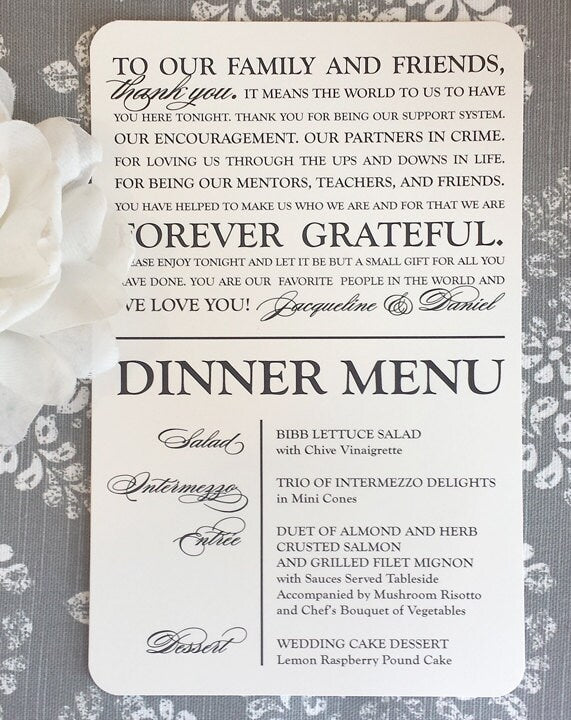 TO OUR FAMILY AND FRIENDS,
thank you. IT MEANS THE WORLD TO US TO HAVE
YOU HERE TONIGHT. THANK YOU FOR BEING OUR SUPPORT SYSTEM.
OUR ENCOURAGEMENT. OUR PARTNERS IN CRIME.
FOR LOVING US THROUGH THE UPS AND DOWNS IN LIFE.
FOR BEING OUR MENTORS, TEACHERS, AND FRIENDS.
YOU HAVE HELPED TO MAKE US WHO WE ARE AND FOR THAT WE ARE
FOREVER GRATEFUL.
PLEASE ENJOY TONIGHT AND LET IT BE BUT A SMALL GIFT FOR ALL YOU
HAVE DONE. YOU ARE OUR FAVORITE PEOPLE IN THE WORLD AND
WE LOVE YOU! Jacqueline & Daniel
DINNER MENU
Salad
BIBB LETTUCE SALAD
with Chive Vinaigrette
Intermezzo
TRIO OF INTERMEZZO DELIGHTS
in Mini Cones
Entrée
DUET OF ALMOND AND HERB
CRUSTED SALMON
AND GRILLED FILET MIGNON
with Sauces Served Tableside
Accompanied by Mushroom Risotto
and Chef's Bouquet of Vegetables
Dessert
WEDDING CAKE DESSERT
Lemon Raspberry Pound Cake